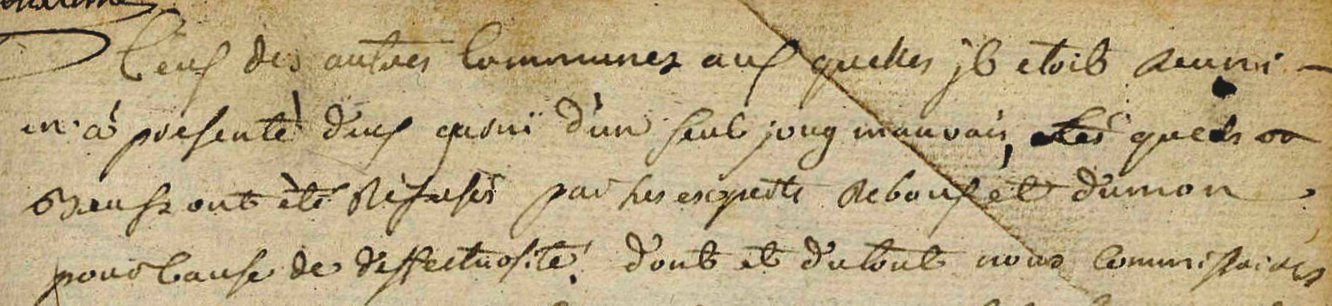 Ceux des autres Communes aux quelles il etoit reuni
n'a présenté deux garni d'un seul joug mauvais, les quels
Bœufs ont été Réfusés par les experts Reboux et dumon
pour Cause de deffectuosité. dont et dutout nous Commissaires